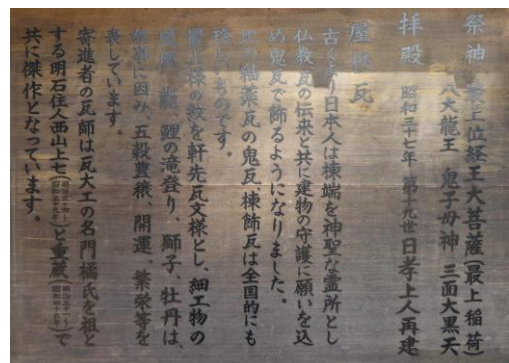 祭神 最上位経王大菩薩(最上稲荷)
八大龍王 鬼子母神 三面大黒天
拝殿 昭和三十七年 第十九世日孝上人再建
屋根瓦
古くより日本人は棟端を神聖な霊所とし
仏教、瓦の伝来と共に建物の守護に願いを込
め鬼瓦で飾るようになりました。
釉薬瓦の鬼瓦、棟飾瓦は全国的にも
珍しいものです。
最上様の紋を軒先瓦文様とし、細工物の
龍、鯉の滝登り、獅子、牡丹は
に因み、五穀豊穣、開運、繁栄等を
表しています。
寄進者の瓦師は瓦大工の名門橘氏を祖と
する明石住人西山上七と重蔵で
共に傑作となっています。